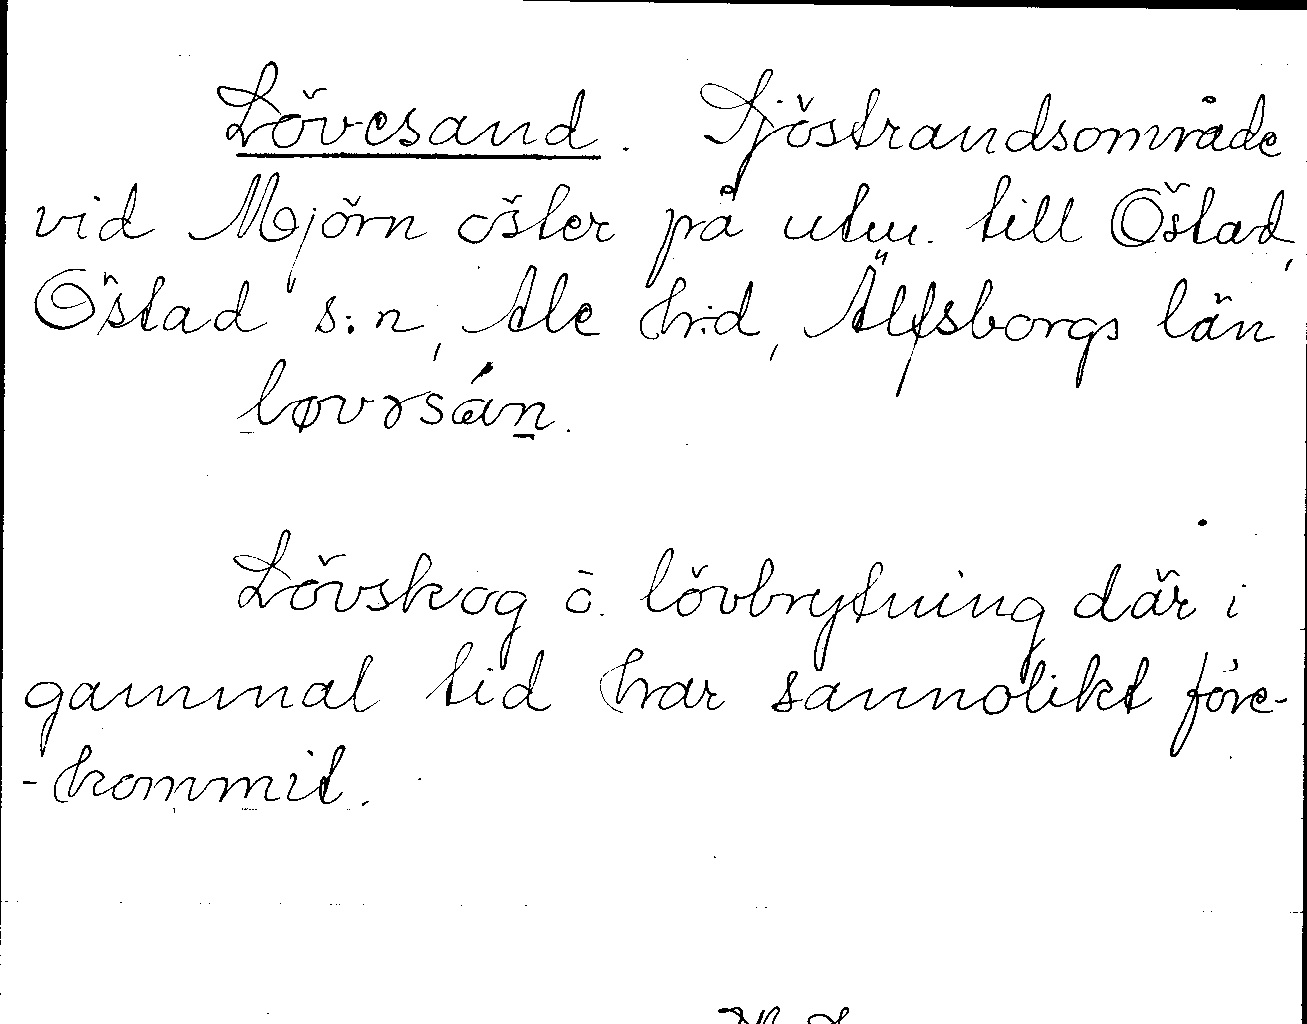 Lövesand. Sjöstrandsområde
vid Mjörn öster på utm. till Östad,
Östad s:n, Ale h:d, Älfsborgs län
løvɤsán.
Lövskog o. lövbrytning där i
gammal tid har sannolikt före-
-kommit.